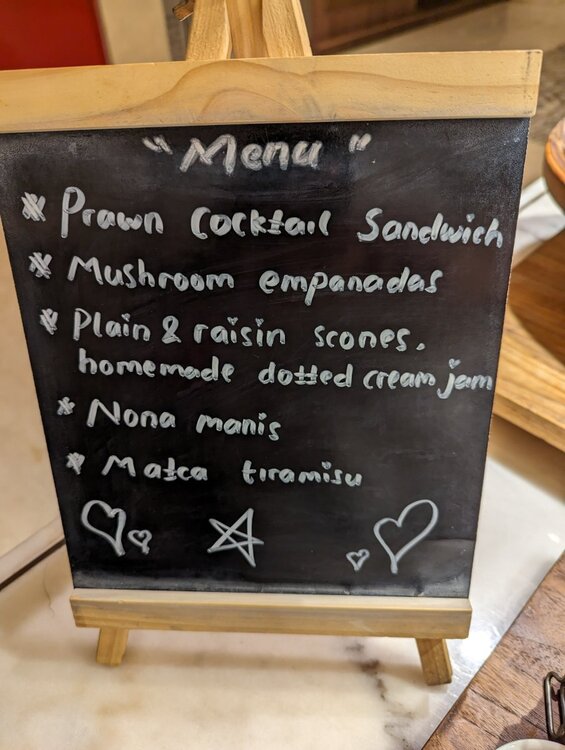 "Menu"
* Prawn Cocktail Sandwich
* Mushroom empanadas
* Plain & raisin scones,
homemade dotted cream jam
* Nona manis
* Matca tiramisu